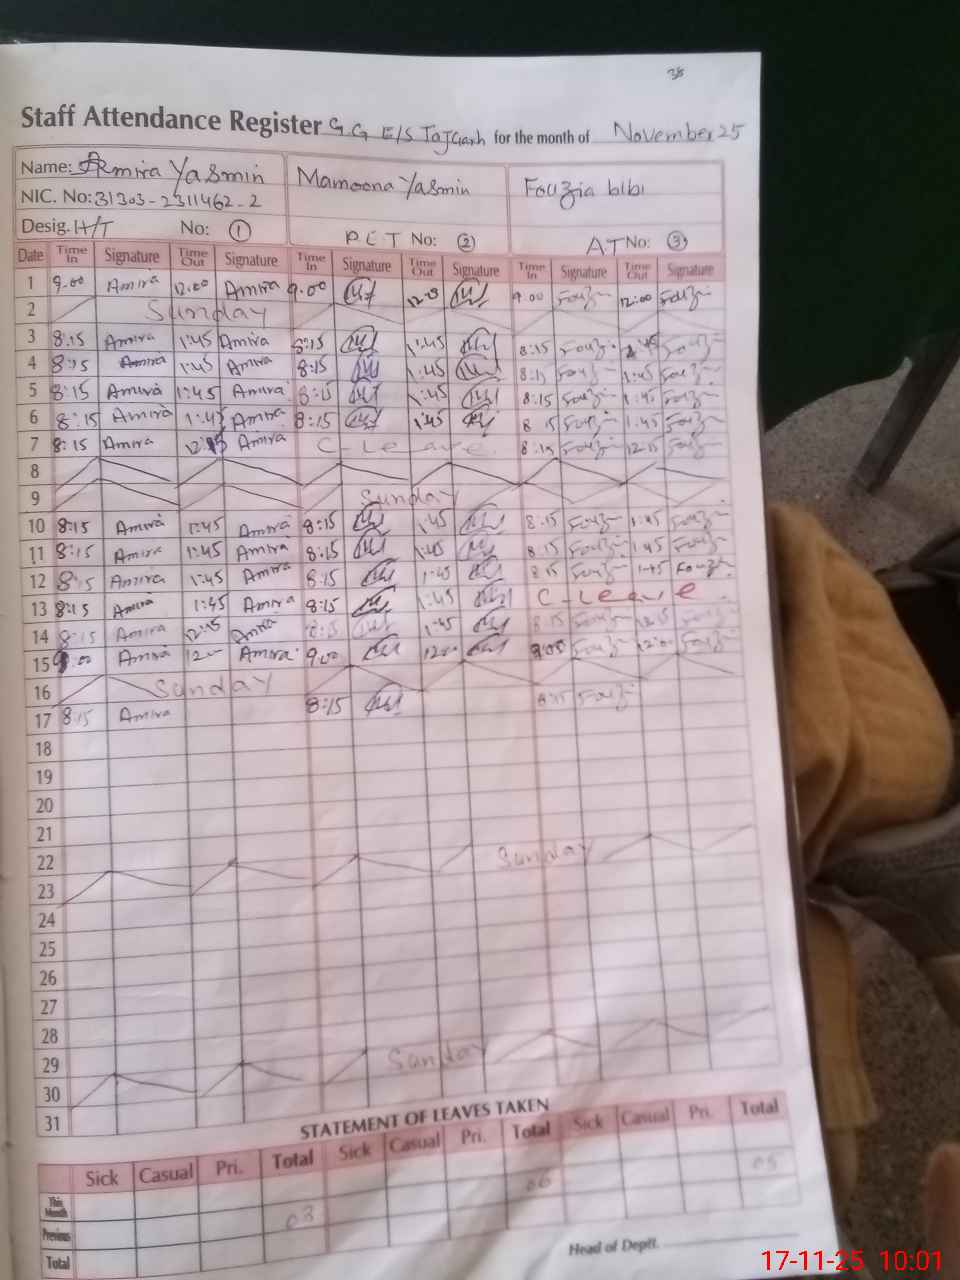 38
Staff Attendance Register G.G E/S Tajgarh for the month of November 25
Name: Amira Yasmin Mamoona Yasmin Fouzia bibi
NIC. No: 31303-2311462-2
Desig. H/T No: 1 P.E.T No: 2 AT No: 3
Date Time In Signature Time Out Signature Time In Signature Time Out Signature Time In Signature Time Out Signature
1 9.00 Amira 12.00 Amira 9.00 12.00 9.00 12:00
2 Sunday
3 8:15 Amira 1:45 Amira 8:15 1:45 8:15
4 8:15 Amira 1:45 Amira 8:15 1:45 8:15 1:45
5 8:15 Amira 1:45 Amira 8:15 1:45 8:15 1:45
6 8:15 Amira 1:45 Amira 8:15 1:45 8 15 1:45
7 8:15 Amira Amira C-Leave 8:15 12:15
8
9 Sunday
10 8:15 Amira 1:45 Amira 8:15 1:45 8:15 1:45
11 8:15 Amira 1:45 Amira 8:15 1:45 8:15 1:45
12 8:15 Amira 1:45 Amira 8:15 1:45 8:15 1:45
13 8:15 Amira 1:45 Amira 8:15 1:45 C-Leave
14 8:15 Amira 12:15 Amira 8:15 1:45 8:15 12:15
15 9.00 Amira 12.00 Amira 9.00 12.00 9:00 12:00
16 Sunday
17 8:15 Amira 8:15 8:15
18
19
20
21
22 Sunday
23
24
25
26
27
28
29 Sunday
30
31
STATEMENT OF LEAVES TAKEN
Sick Casual Pri. Total Sick Casual Pri. Total Sick Casual Pri. Total
This Month 06 05
Previous 03
Total
Head of Deptt.
17-11-25 10:01